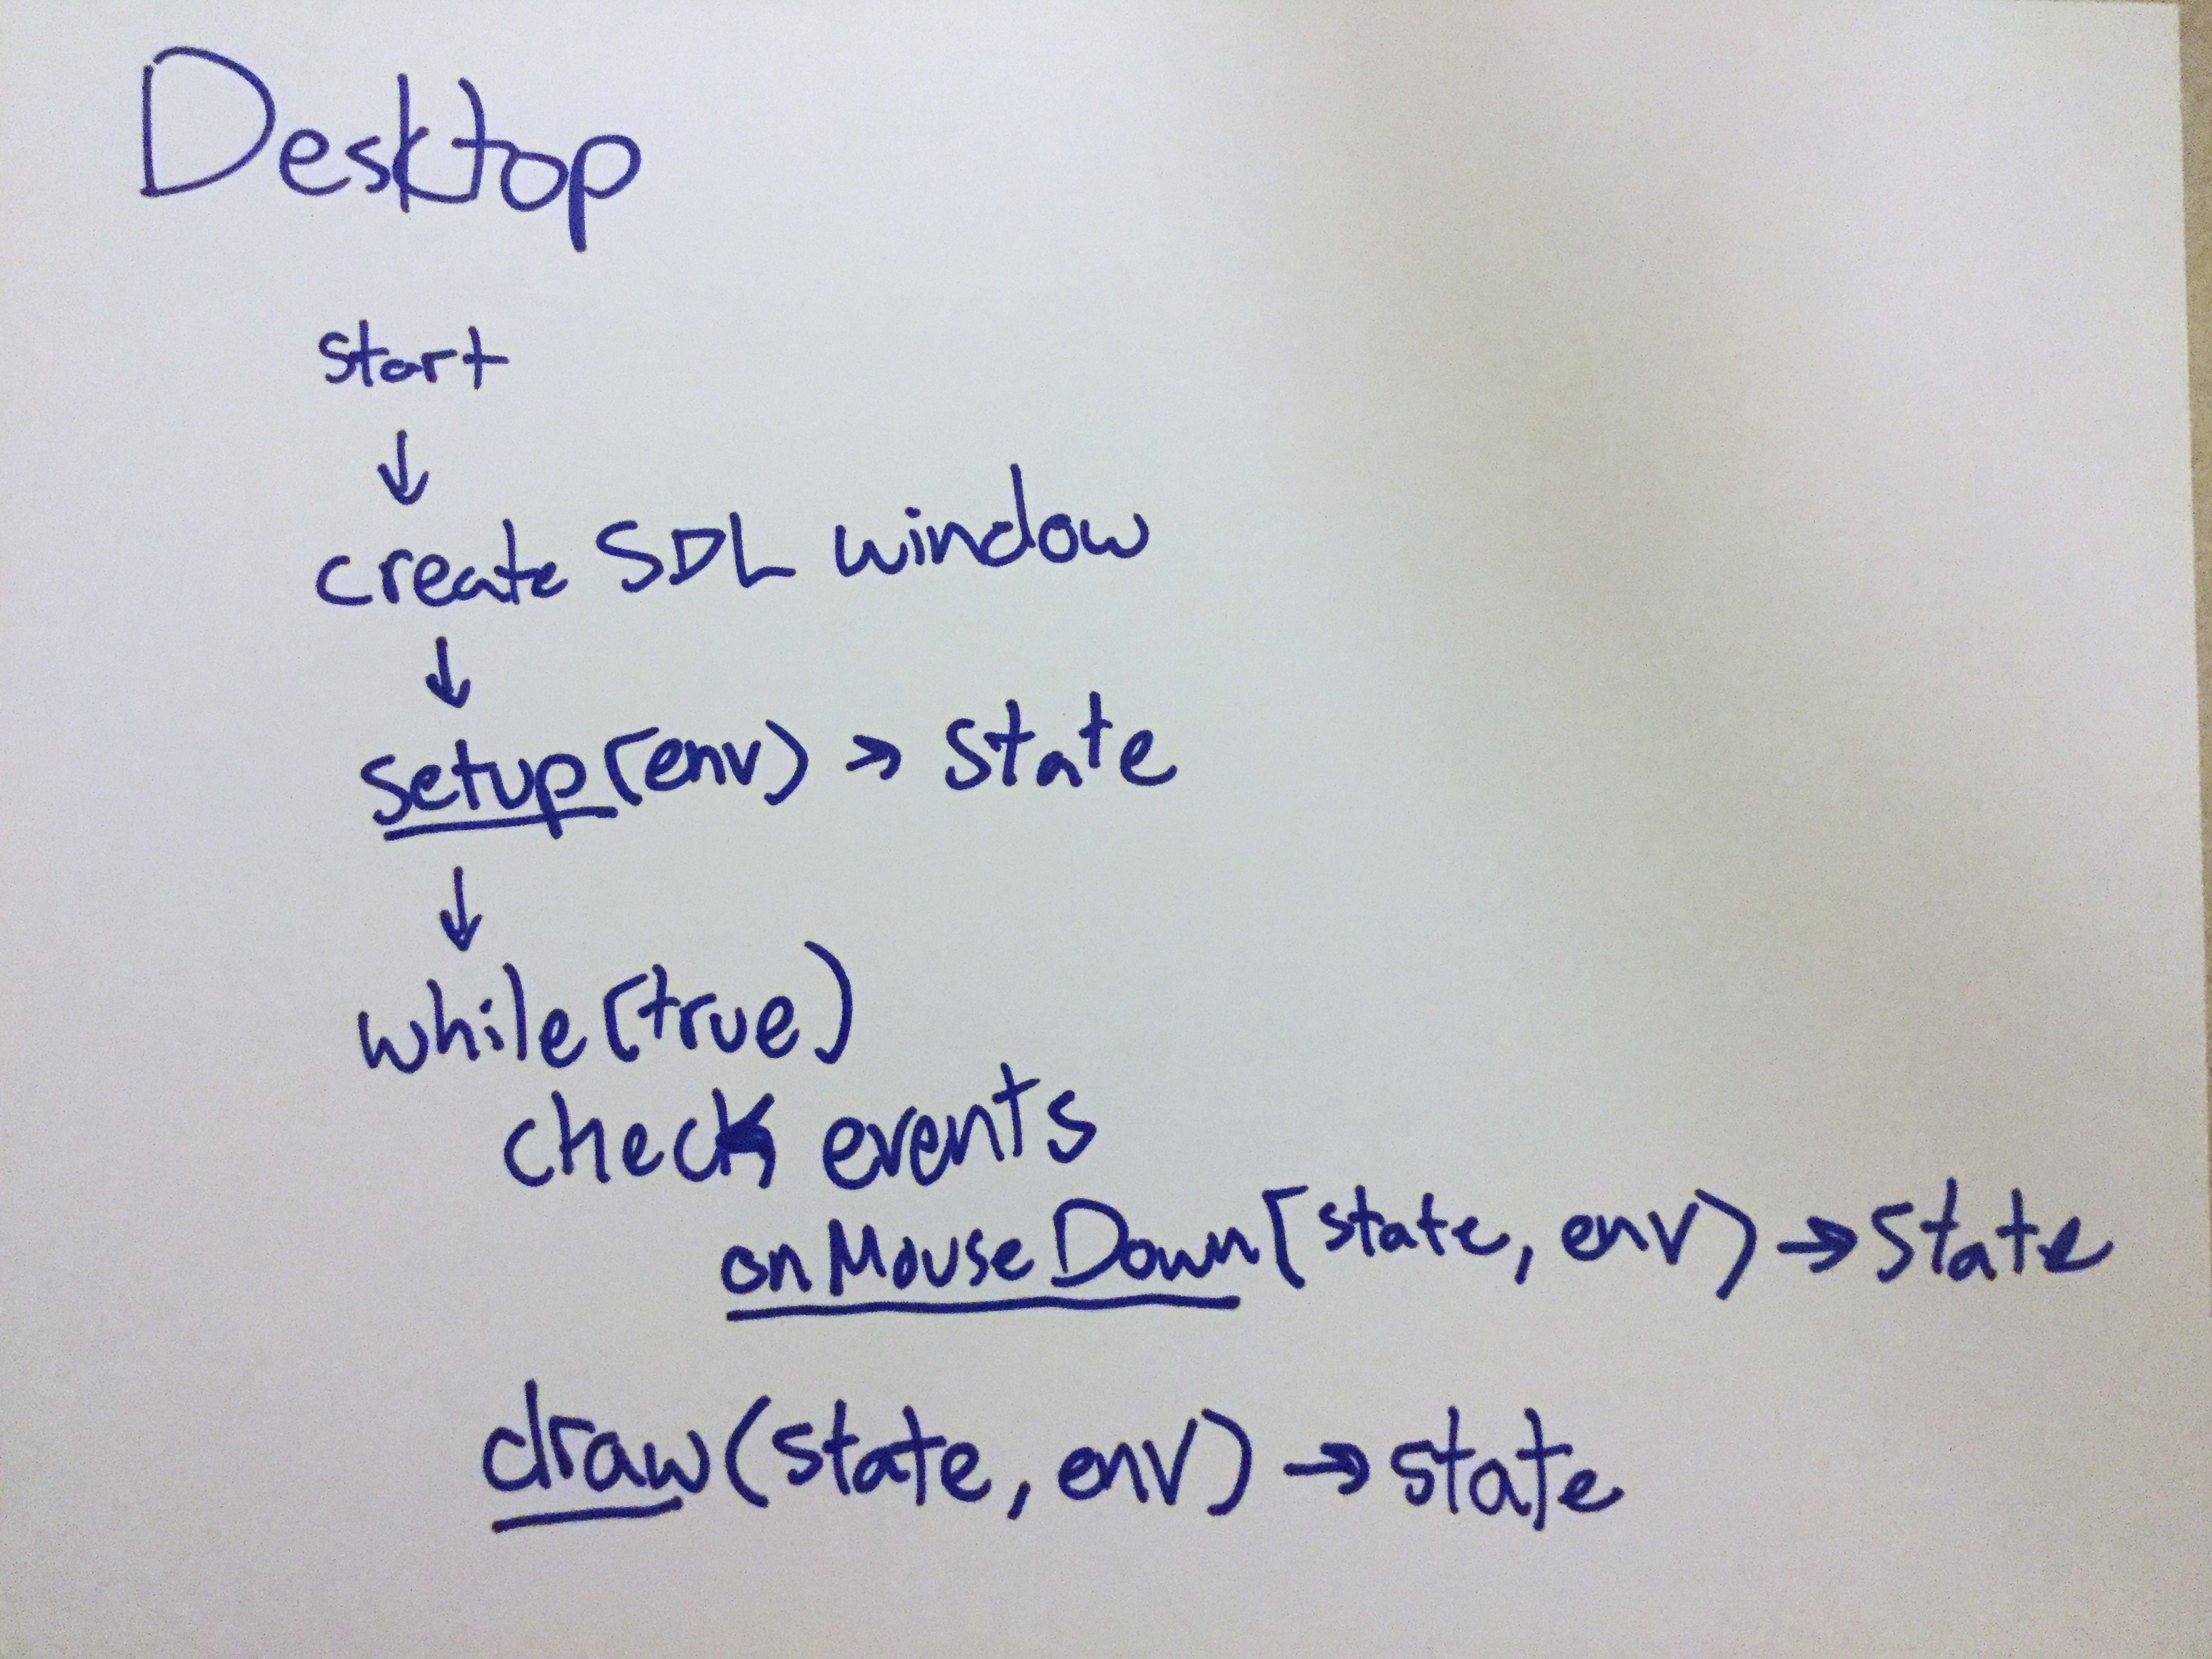 Desktop
start
↓
create SDL window
↓
setup(env) → state
↓
while(true)
check events
onMouseDown(state, env) → state
draw(state, env) → state